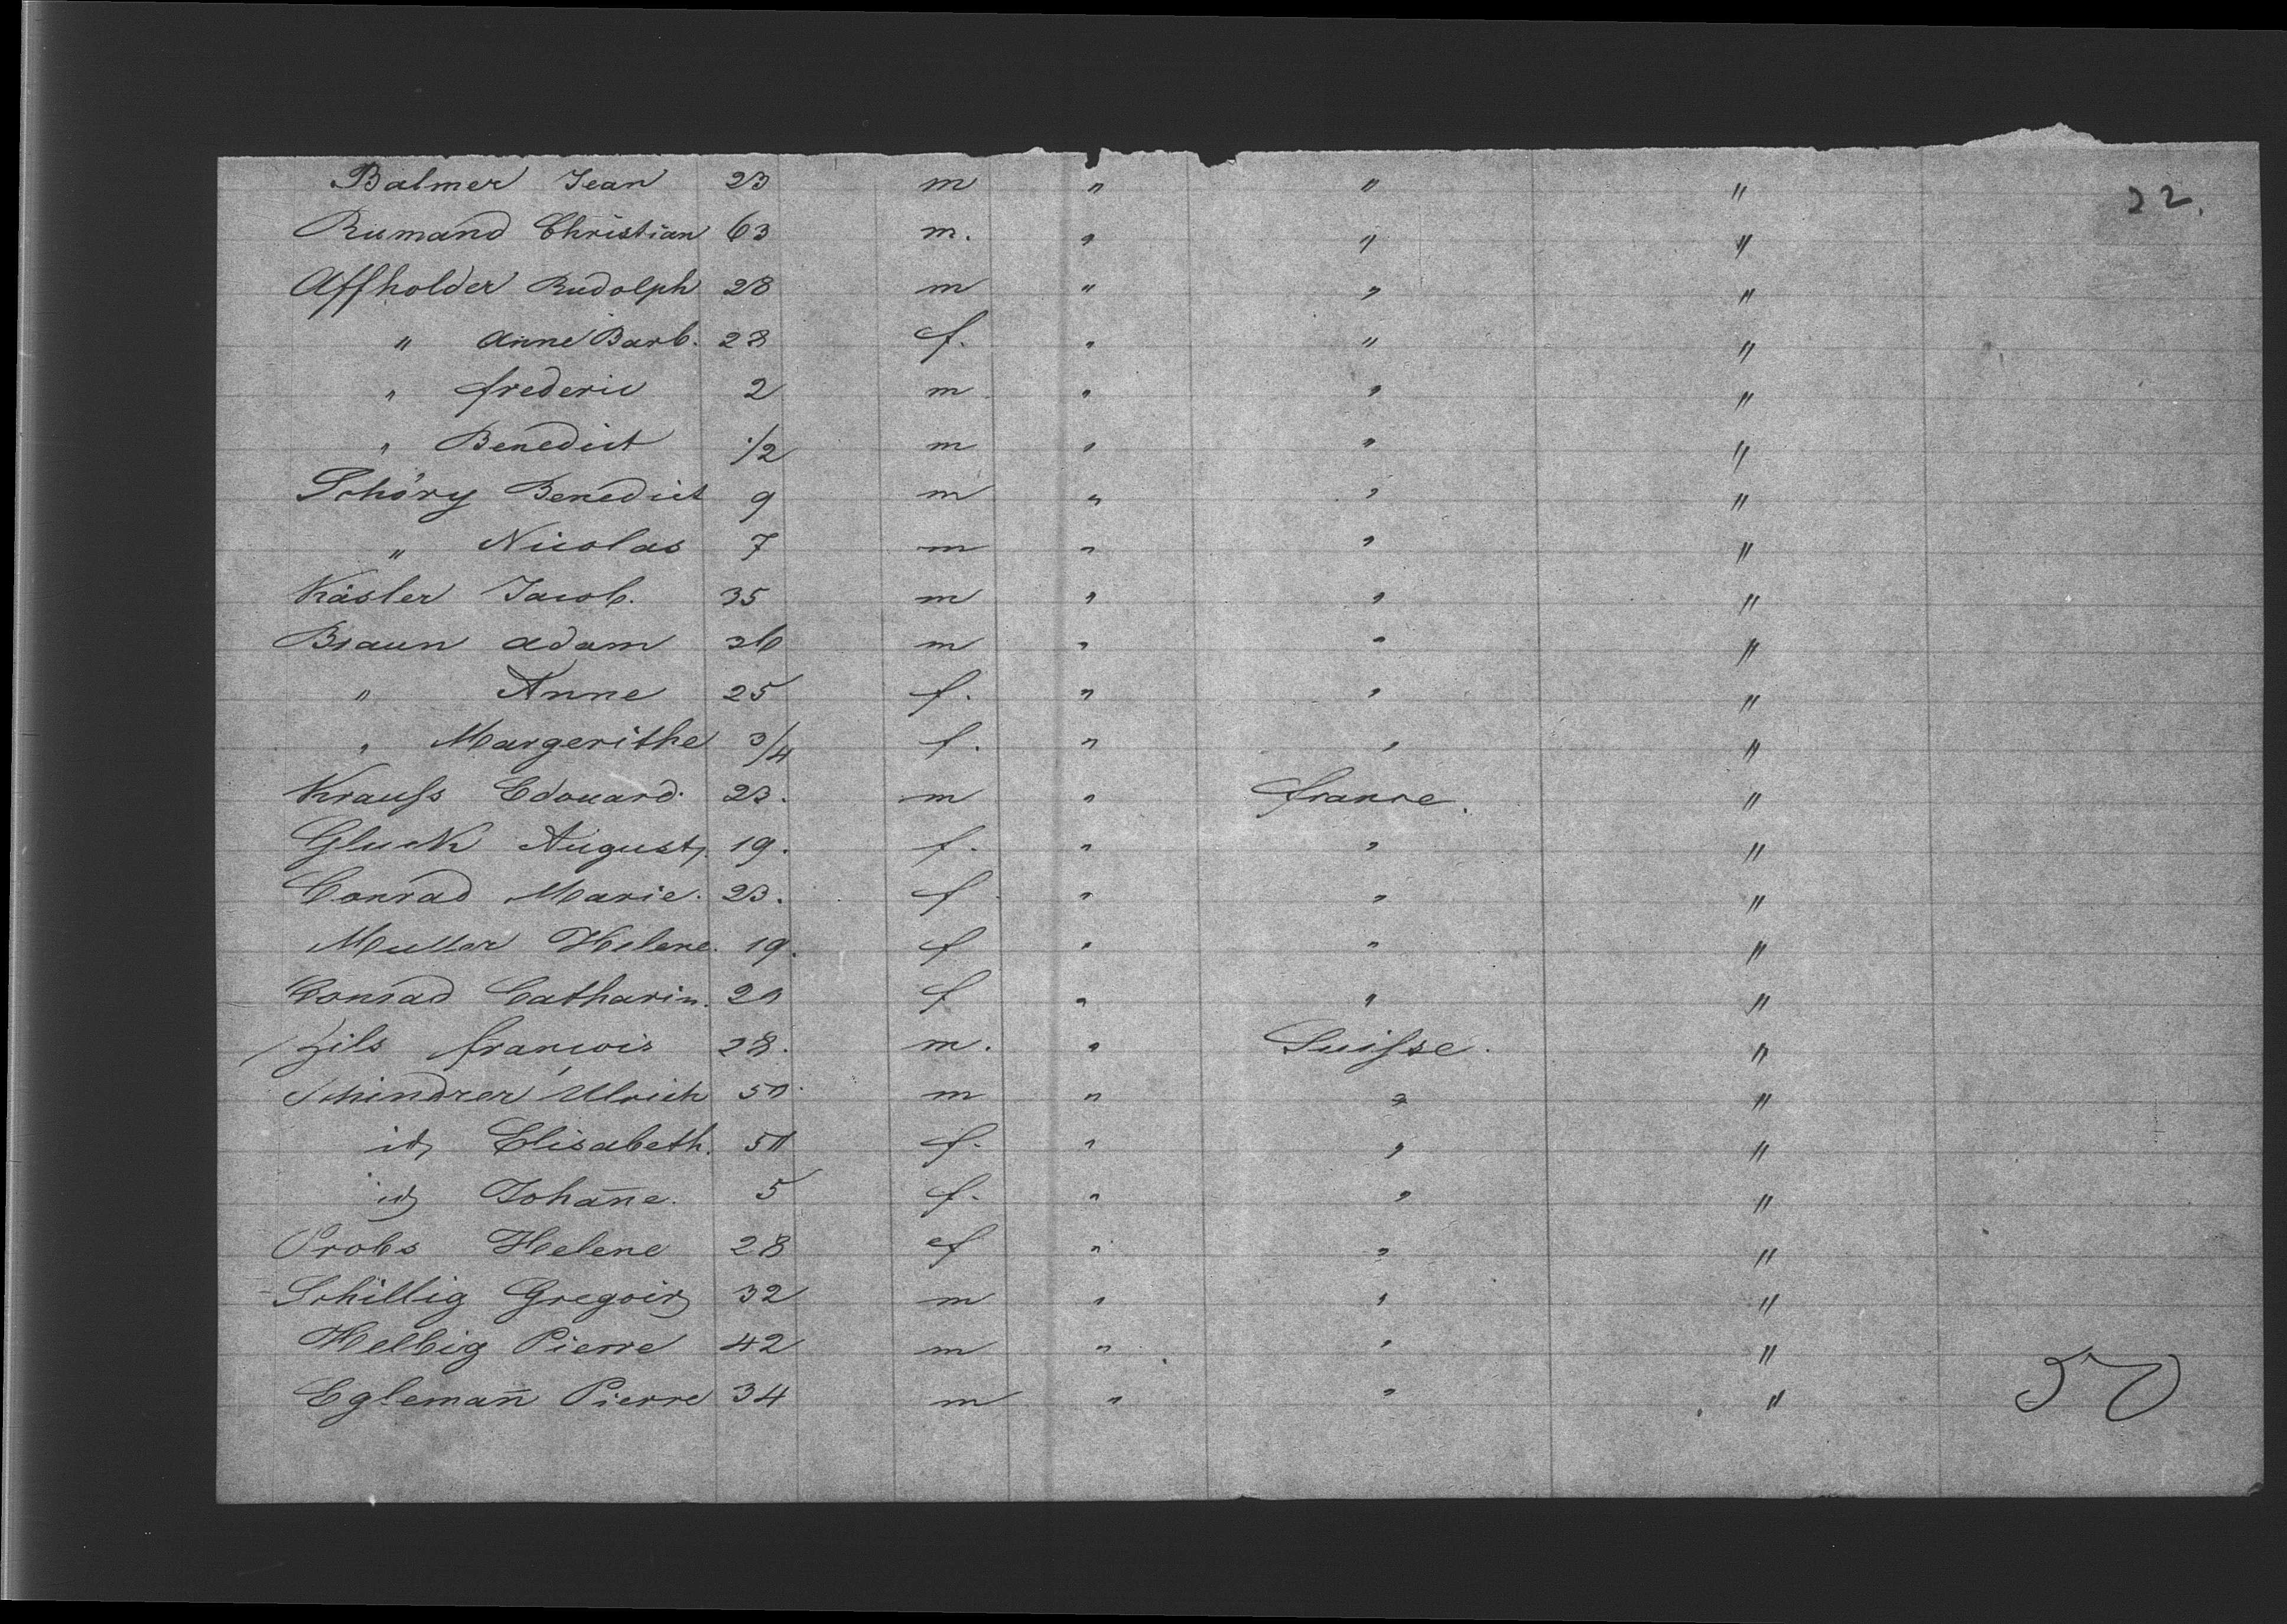 Balmer Jean 23 m " " " 22.
Rumand Christian 63 m. " " "
Affholder Rudolph 28 m " " "
" Anne Barb. 28 f. " " "
" frederic 2 m " " "
" Benedict 1/2 m " " "
Schöry Benedict 9 m " " "
" Nicolas 7 m " " "
Käsler Jacob. 35 m " " "
Braun adam 26 m " " "
" Anne 25 f. " " "
" Margerithe 3/4 f. " " "
Krauſs Edouard. 23. m " france. "
Gluck August, 19. f. " " "
Conrad Marie. 23. f " " "
Muller Helene. 19. f " " "
Conrad Catharin. f " " "
Zils françois 28. m. " Suiſse. "
Schindrer Ulrich 50 m " " "
id, Elisabeth. f. " " "
id, Johan̄e. 5 f. " " "
Probs Helene 28 f " " "
Schillig Gregoir, 32 m " " "
Helbig Pierre 42 m " " "
Egleman̄ Pierre 34 m " " " 50